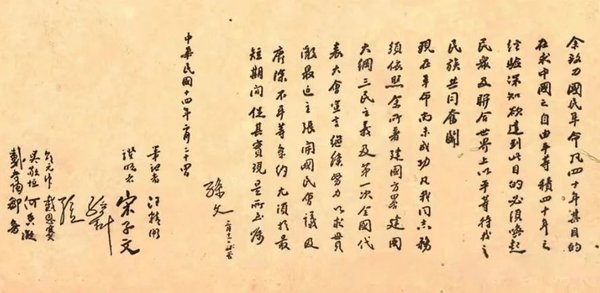 余致力國民革命凡四十年其目的
在求中國之自由平等積四十年之
經驗深知欲達到此目的必須喚起
民眾及聯合世界上以平等待我之
民族共同奮鬥
現在革命尚未成功凡我同志務
須依照余所著建國方略建國
大綱三民主義及第一次全國代
表大會宣言繼續努力以求貫
徹最近主張開國民會議及
廢除不平等條約尤須於最
短期間促其實現是所至囑
孫文
中華民國十四年二月二十四日
筆記者 汪精衛
證明者 宋子文
邵元沖 戴恩賽
吳敬恆 何香凝
戴季陶 鄒魯